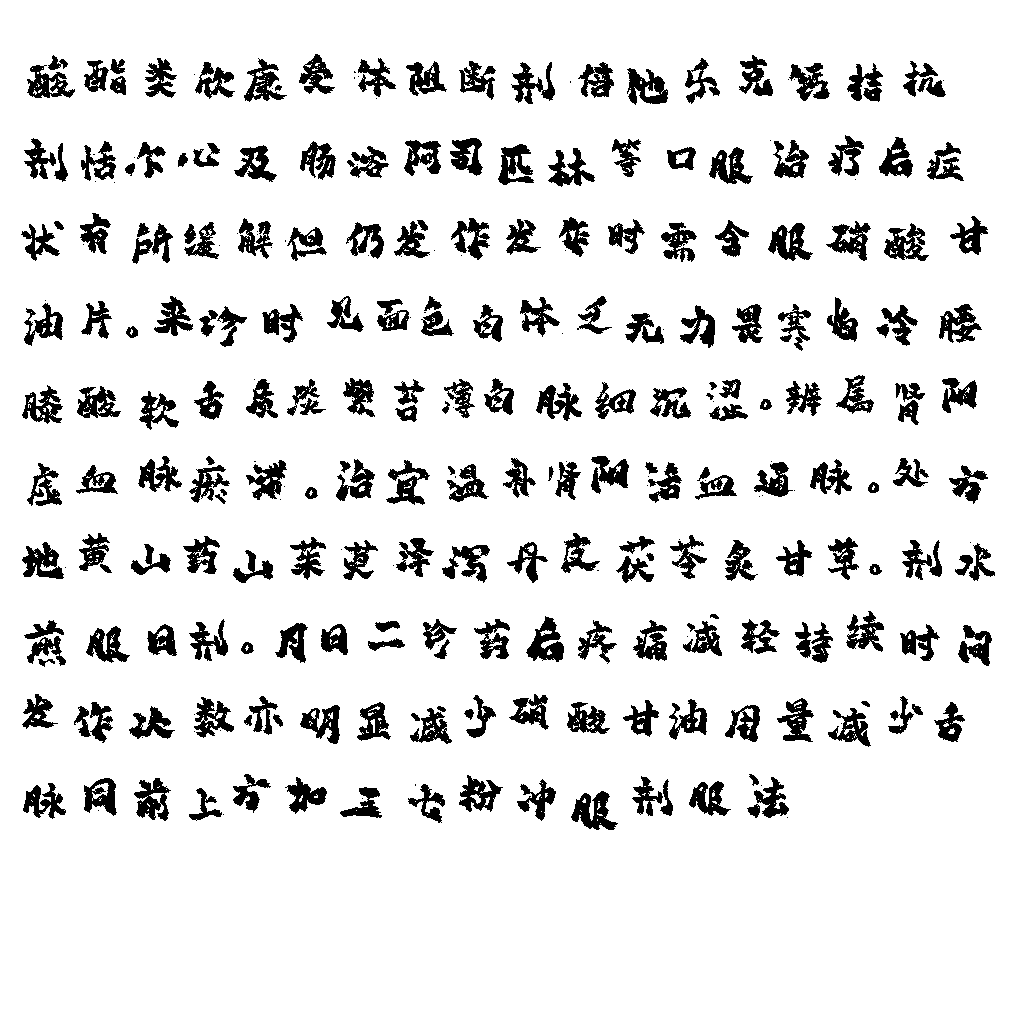 酸酯类欣康受体阻断剂倍他乐克钙拮抗
剂恬尔心及肠溶阿司匹林等口服治疗后症
状有所缓解但仍发作发作时需含服硝酸甘
油片。来诊时见面色白体乏无力畏寒怕冷腰
膝酸软舌质淡紫苔薄白脉细沉涩。辨属肾阳
虚血脉瘀滞。治宜温补肾阳活血通脉。处方
地黄山药山茱萸泽泻丹皮茯苓炙甘草。剂水
煎服日剂。月日二诊药后疼痛减轻持续时间
发作次数亦明显减少硝酸甘油用量减少舌
脉同前上方加三七粉冲服剂服法